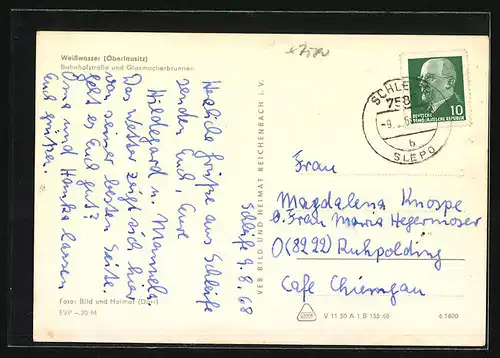 Weißwasser (Oberlausitz)
Bahnhofstraße und Glasmacherbrunnen
Schleife 9.8.68
Herzliche Grüße aus Schleife
senden Euch, Eure
Hildegard u. Manuela
Das Wetter zeigt sich hier
von seiner besten Seite.
Geht es Euch gut?
Oma und Hanka lassen
Euch grüßen.
Foto: Bild und Heimat (Dörr)
EVP –.20 M
VEB BILD UND HEIMAT REICHENBACH i. V.
SCHLE
758
-9.
b
SLEPO
10
DEUTSCHE
DEMOKRATISCHE REPUBLIK
Frau
Magdalena Knospe
b. Frau Maria Hegermoser
(8222) Ruhpolding
Cafe Chiemgau
V 11 50 A 1 B 155-68
6 1600